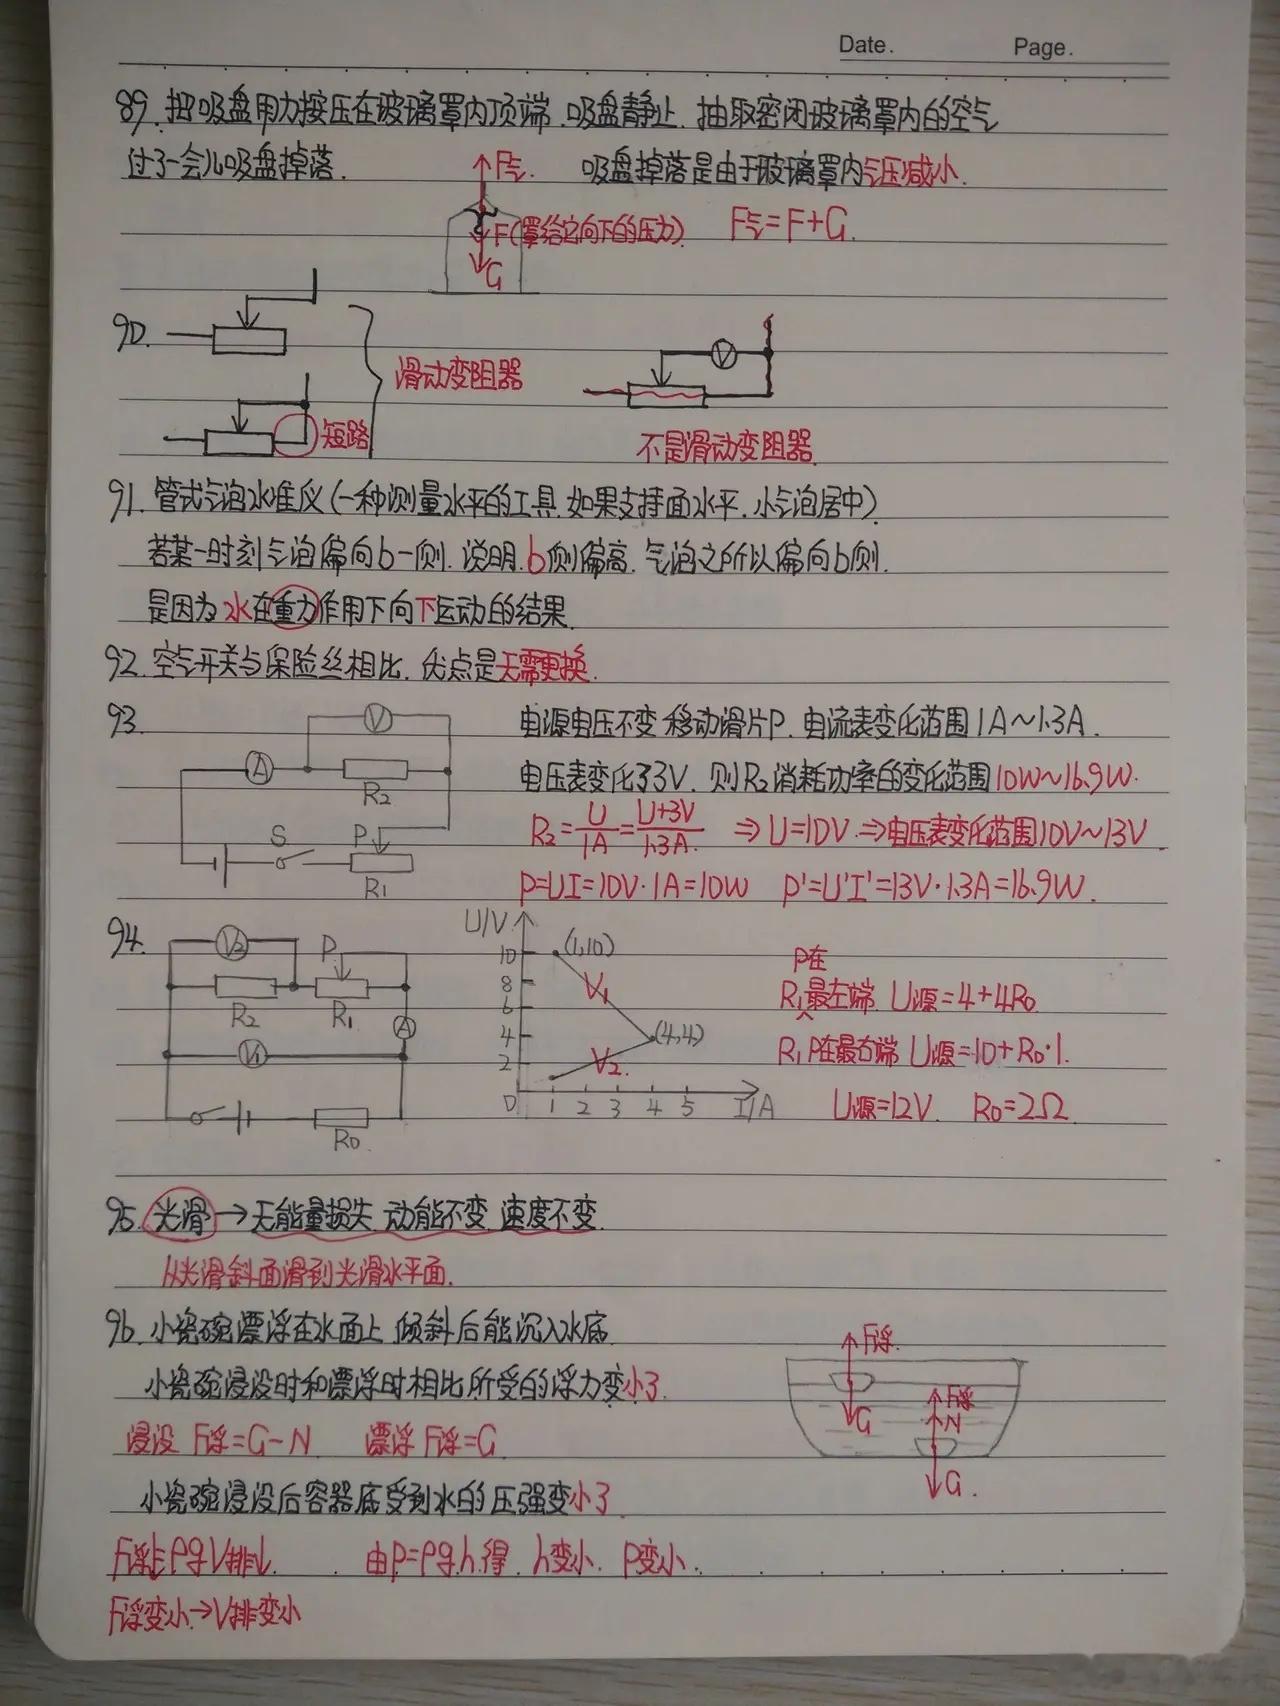 Date. Page.
89. 把吸盘用力按压在玻璃罩内顶端.吸盘静止.抽取密闭玻璃罩内的空气
过了一会儿吸盘掉落. F气. 吸盘掉落是由于玻璃罩内气压减小.
F(罩给它向下的压力) F气=F+G.
G
90.
滑动变阻器 V
短路
不是滑动变阻器
91. 管式气泡水准仪(一种测量水平的工具.如果支持面水平.小气泡居中)
若某一时刻气泡偏向b一侧.说明.b侧偏高.气泡之所以偏向b侧.
是因为水在重力作用下向下运动的结果.
92.空气开关与保险丝相比.优点是无需更换.
93. V 电源电压不变 移动滑片P.电流表变化范围1A~1.3A.
A R2 电压表变化了3V.则R2消耗功率的变化范围10W~16.9W.
S P R2=U/1A=U+3V/1.3A ⇒U=10V⇒电压表变化范围10V~13V.
R1 P=UI=10V·1A=10W P'=U'I'=13V·1.3A=16.9W.
94. V2 P U/V 10 (1,10) P在
R2 R1 8 V1 R1最左端 U源=4+4R0
A 6
4 (4,4)
V1 2 V2 R1P在最右端 U源=10+R0·1.
0 1 2 3 4 5 I/A U源=12V. R0=2Ω
R0
95. 光滑→无能量损失 动能不变 速度不变.
从光滑斜面滑到光滑水平面.
96. 小瓷碗漂浮在水面上 倾斜后能沉入水底 F浮.
小瓷碗浸没时和漂浮时相比所受的浮力变小了. F浮
G N
浸没 F浮=G-N 漂浮 F浮=G
小瓷碗浸没后容器底受到水的压强变小了 G.
F浮↓=ρgV排↓. 由p=ρgh.得 h变小. P变小.
F浮变小→V排变小